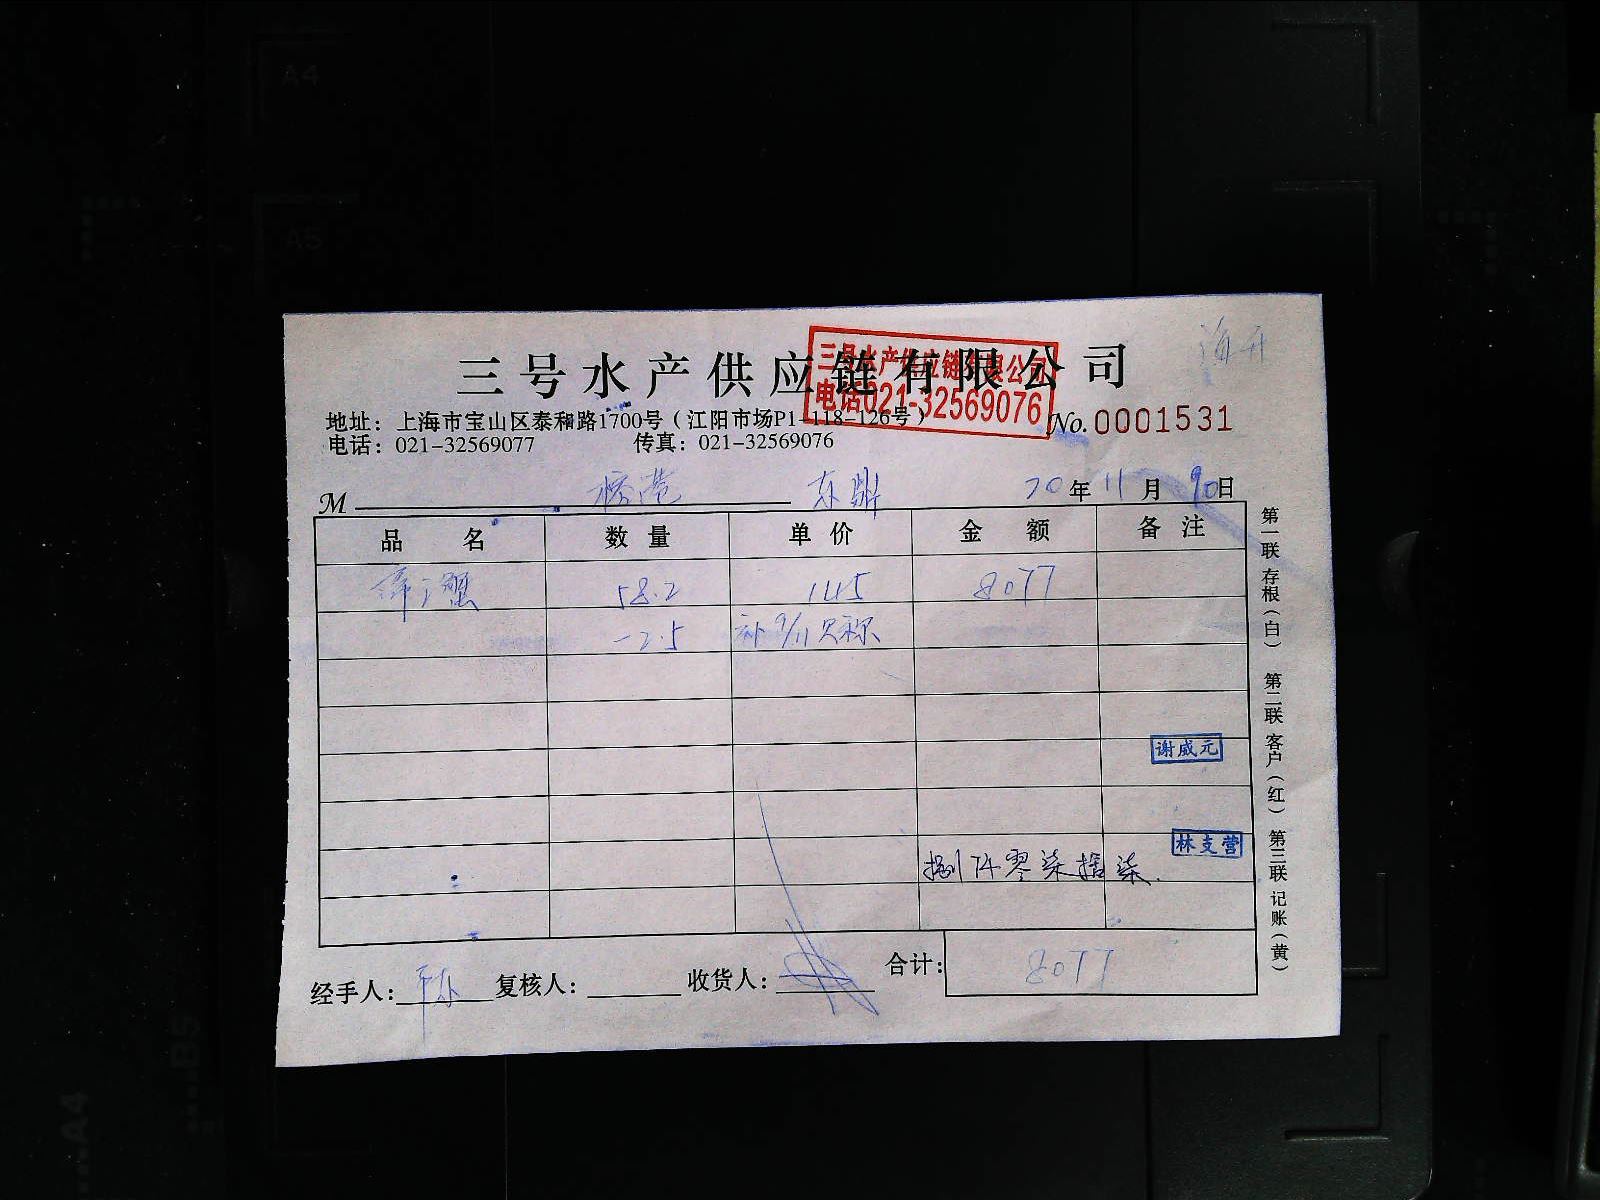 A4
A5
海开
三号水产供应链有限公司
三号水产供应链有限公司
电话021-32569076
地址：上海市宝山区泰和路1700号（江阳市场P1-118-126号）
No.0001531
电话：021-32569077 传真：021-32569076
M 东鼎 20年11月 日
品名 数量 单价 金额 备注
蟹 58.2 145 8077
-2.5 补9/11欠称
谢威元
林支营
捌仟零柒拾柒
经手人： 复核人： 收货人： 合计：8077
第一联 存根（白） 第二联 客户（红） 第三联 记账（黄）
B5
A4